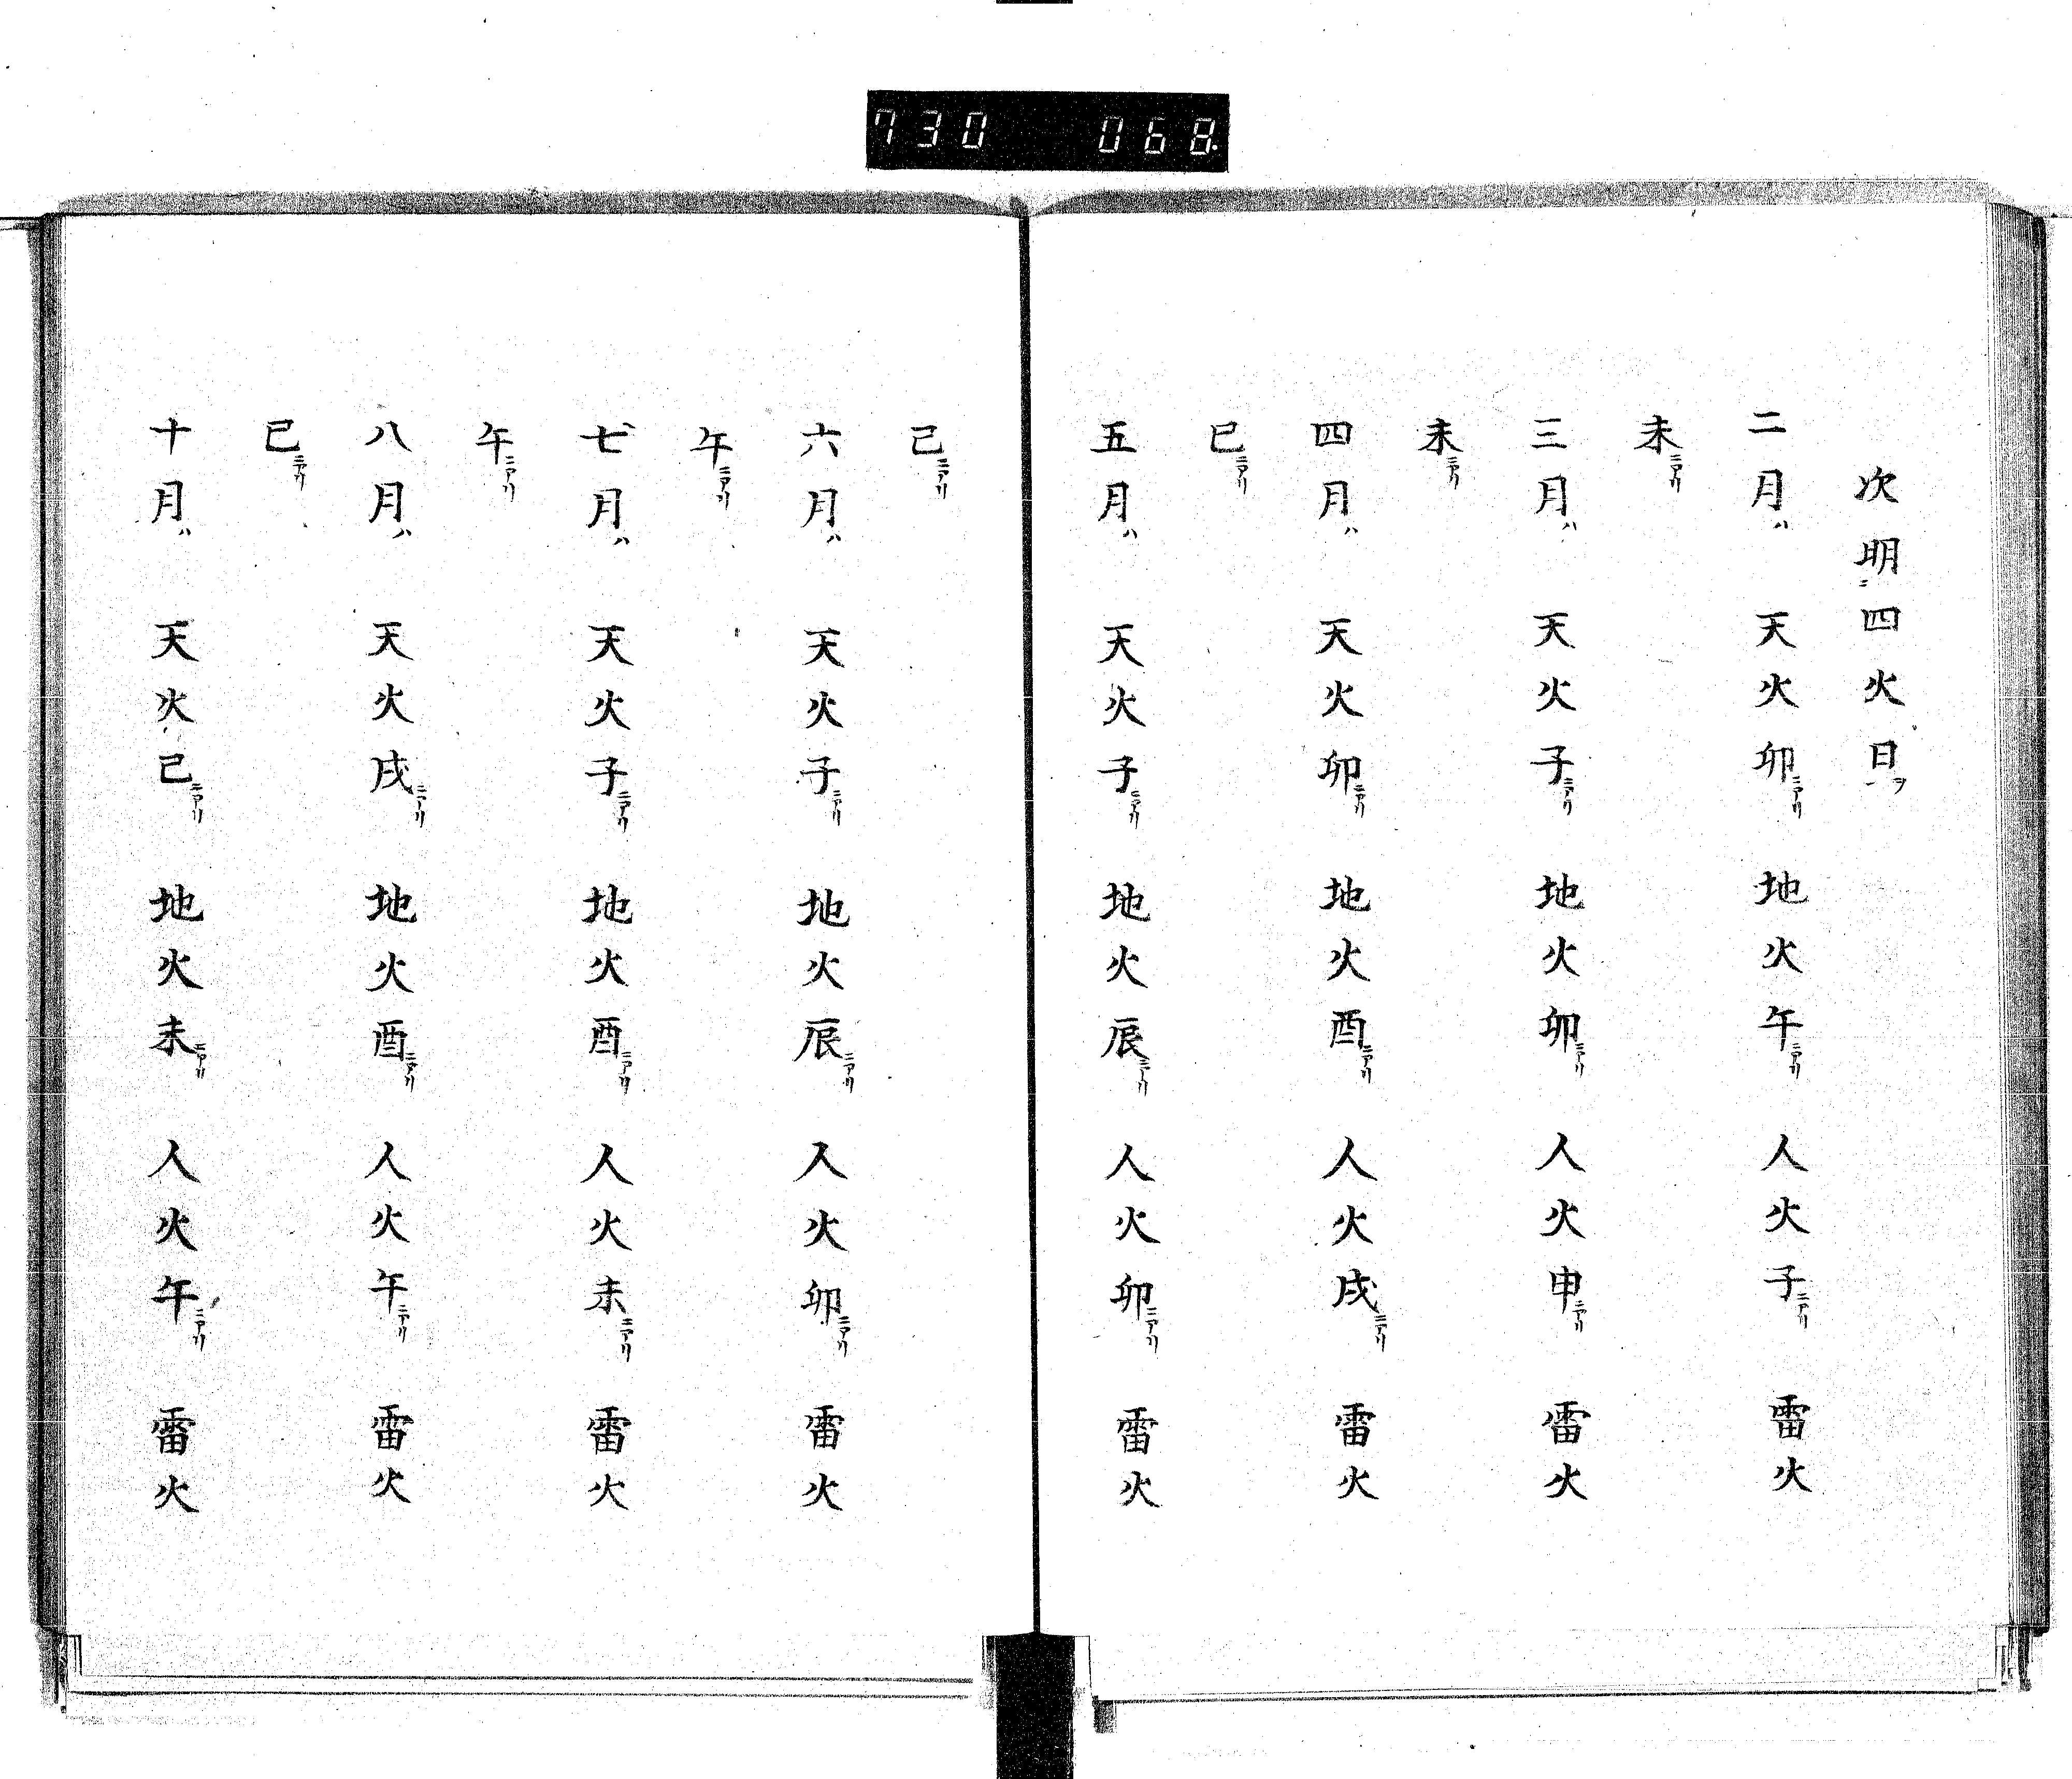 730 068.
次明ニ四火日ヲ
二月ハ 天火卯ニアリ 地火午ニアリ 人火子ニアリ 雷火
未ニアリ
三月ハ 天火子ニアリ 地火卯ニアリ 人火申ニアリ 雷火
未ニアリ
四月ハ 天火卯ニアリ 地火酉ニアリ 人火戌ニアリ 雷火
巳ニアリ
五月ハ 天火子ニアリ 地火辰ニアリ 人火卯ニアリ 雷火
巳ニアリ
六月ハ 天火子ニアリ 地火辰ニアリ 人火卯ニアリ 雷火
午ニアリ
七月ハ 天火子ニアリ 地火酉ニアリ 人火未ニアリ 雷火
午ニアリ
八月ハ 天火戌ニアリ 地火酉ニアリ 人火午ニアリ 雷火
巳ニアリ
十月ハ 天火巳ニアリ 地火未ニアリ 人火午ニアリ 雷火